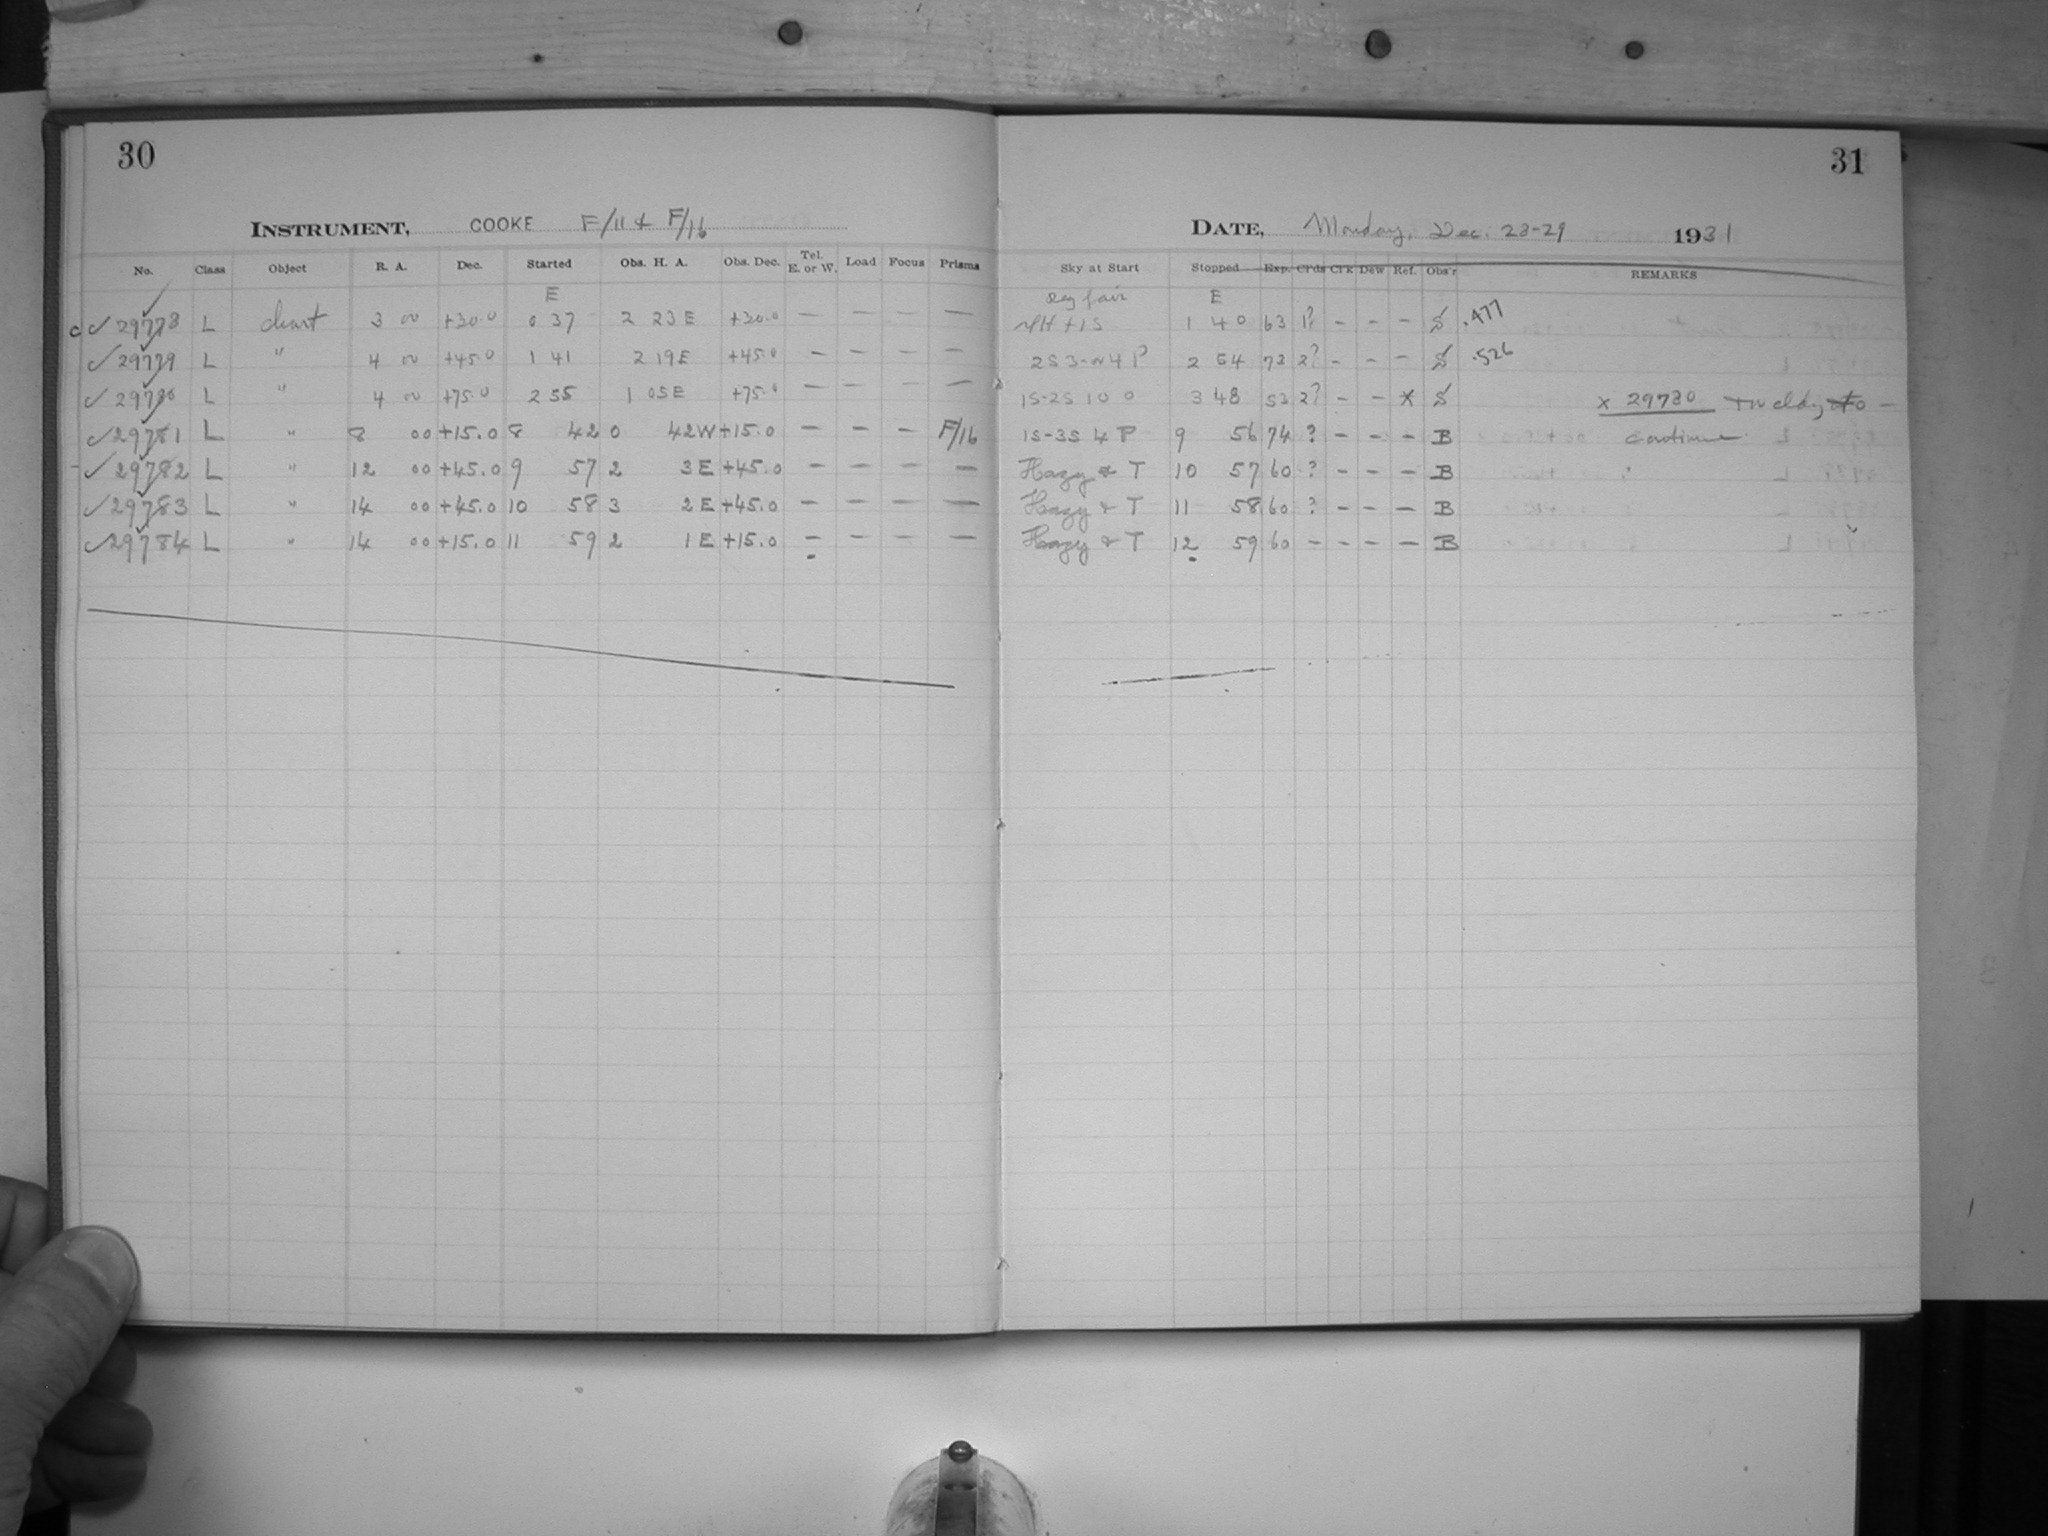 30
INSTRUMENT, COOKE F/11 & F/16
No. Class Object R. A. Dec. Started Obs. H. A. Obs. Dec. Tel. E. or W. Load Focus Prisms
E
c ✓ 29778 L chart 3 00 +30.0 0 37 2 23 E +30.0 — — — —
✓ 29779 L " 4 00 +45.0 1 41 2 19 E +45.0 — — — —
✓ 29780 L " 4 00 +75.0 2 55 1 05 E +75.0 — — — —
✓ 29781 L " 8 00 +15.0 8 42 0 42 W +15.0 — — — F/16
✓ 29782 L " 12 00 +45.0 9 57 2 3 E +45.0 — — — —
✓ 29783 L " 14 00 +45.0 10 58 3 2 E +45.0 — — — —
✓ 29784 L " 14 00 +15.0 11 59 2 1 E +15.0 — — — —
31
DATE, Monday, Dec. 28-29 1931
Sky at Start Stopped Exp. Cl'ds Cl'k Dew Ref. Obs'r REMARKS
fair E
1 40 63 1? - - - S .477
2S 3- 4 P 2 54 73 2? - - - S .526
1S-2S 10 0 3 48 53 2? - - * S x 29780
1S-3S 4 P 9 56 74 ? - - - B continue
Hazy & T 10 57 60 ? - - - B
Hazy & T 11 58 60 ? - - - B
Hazy & T 12 59 60 - - - - B